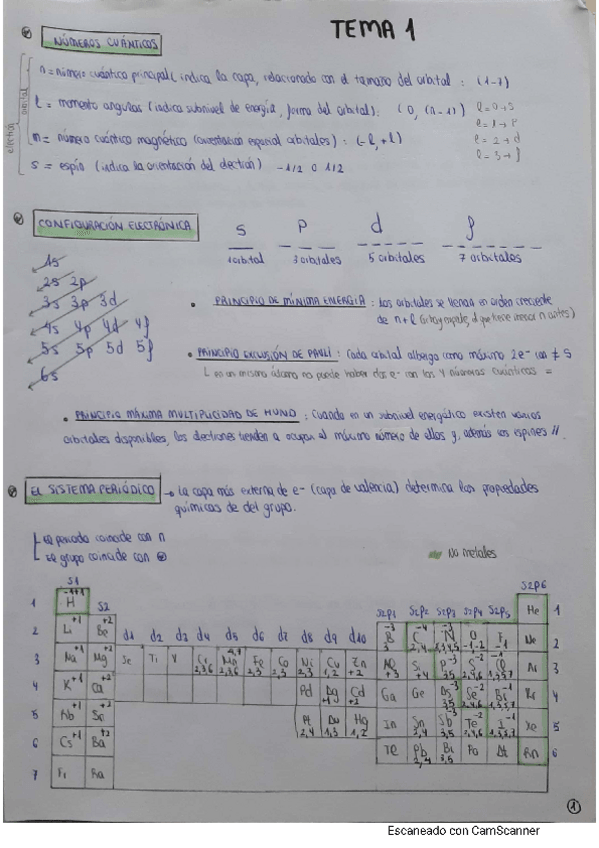 TEMA 1
NÚMEROS CUÁNTICOS
n = número cuántico principal (indica la capa, relacionado con el tamaño del orbital : (1-7)
l = momento angular (indica subnivel de energía, forma del orbital): (0, (n-1)) l=0→s
l=1→p
m = número cuántico magnético (orientación espacial orbitales): (-l,+l) l=2→d
l=3→f
s = espín (indica la orientación del electrón) -1/2 o 1/2
electrón
orbital
CONFIGURACIÓN ELECTRÓNICA
s p d f
1 orbital 3 orbitales 5 orbitales 7 orbitales
1s
2s 2p
3s 3p 3d
4s 4p 4d 4f
5s 5p 5d 5f
6s
• PRINCIPIO DE MÍNIMA ENERGÍA : Los orbitales se llenan en orden creciente
de n+l (si hay empate, el que tiene menor n antes)
• PRINCIPIO EXCLUSIÓN DE PAULI : Cada orbital alberga como máximo 2e- con ≠ s
en un mismo átomo no puede haber dos e- con los 4 números cuánticos =
• PRINCIPIO MÁXIMA MULTIPLICIDAD DE HUND : Cuando en un subnivel energético existen varios
orbitales disponibles, los electrones tienden a ocupar el máximo número de ellos y, además los espines //.
EL SISTEMA PERIÓDICO → La capa más externa de e- (capa de valencia) determina las propiedades
químicas de del grupo.
El periodo coincide con n
El grupo coincide con
No metales
s1 s2p6
1 H -1+1 s2 s2p1 s2p2 s2p3 s2p4 s2p5 He 1
2 Li +1 Be +2 d1 d2 d3 d4 d5 d6 d7 d8 d9 d10 B C N O F Ne 2
3 Na +1 Mg +2 Sc Ti V Cr Mn Fe Co Ni Cu Zn Al Si P S Cl Ar 3
4 K +1 Ca +2 Pd Ag Cd Ga Ge As Se Br Kr 4
5 Rb +1 Sr Pt Au Hg In Sn Sb Te I Xe 5
6 Cs +1 Ba +2 Tl Pb Bi Po At Rn 6
7 Fr Ra
1
Escaneado con CamScanner